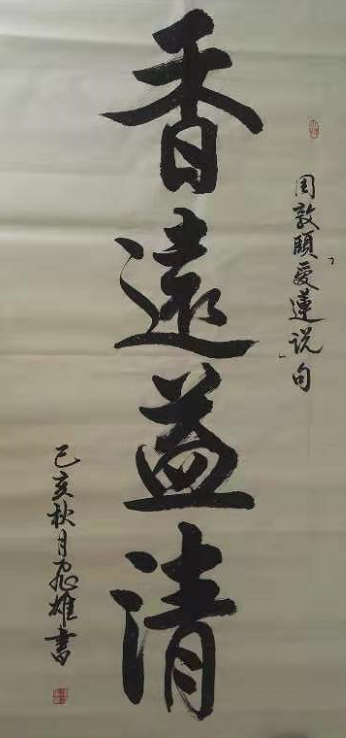 周敦頤「愛蓮说」句
香遠益清
己亥秋月忍雄書